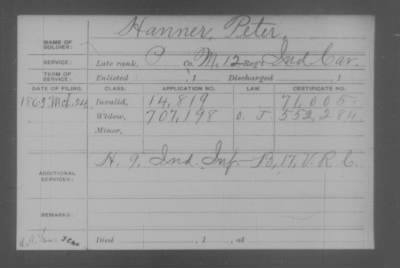 Hanner, Peter,
NAME OF SOLDIER:
SERVICE: Late rank, P Co M, 12 Reg't Ind. Cav.
TERM OF SERVICE: Enlisted , 1 Discharged , 1
DATE OF FILING. CLASS. APPLICATION NO. LAW. CERTIFICATE NO.
Invalid, 14,819 71,005
Widow, 707,198 552,284
Minor,
ADDITIONAL SERVICES: H. 9, Ind. Inf. - B, 17, V. R. C.
REMARKS:
Died , 1 , at